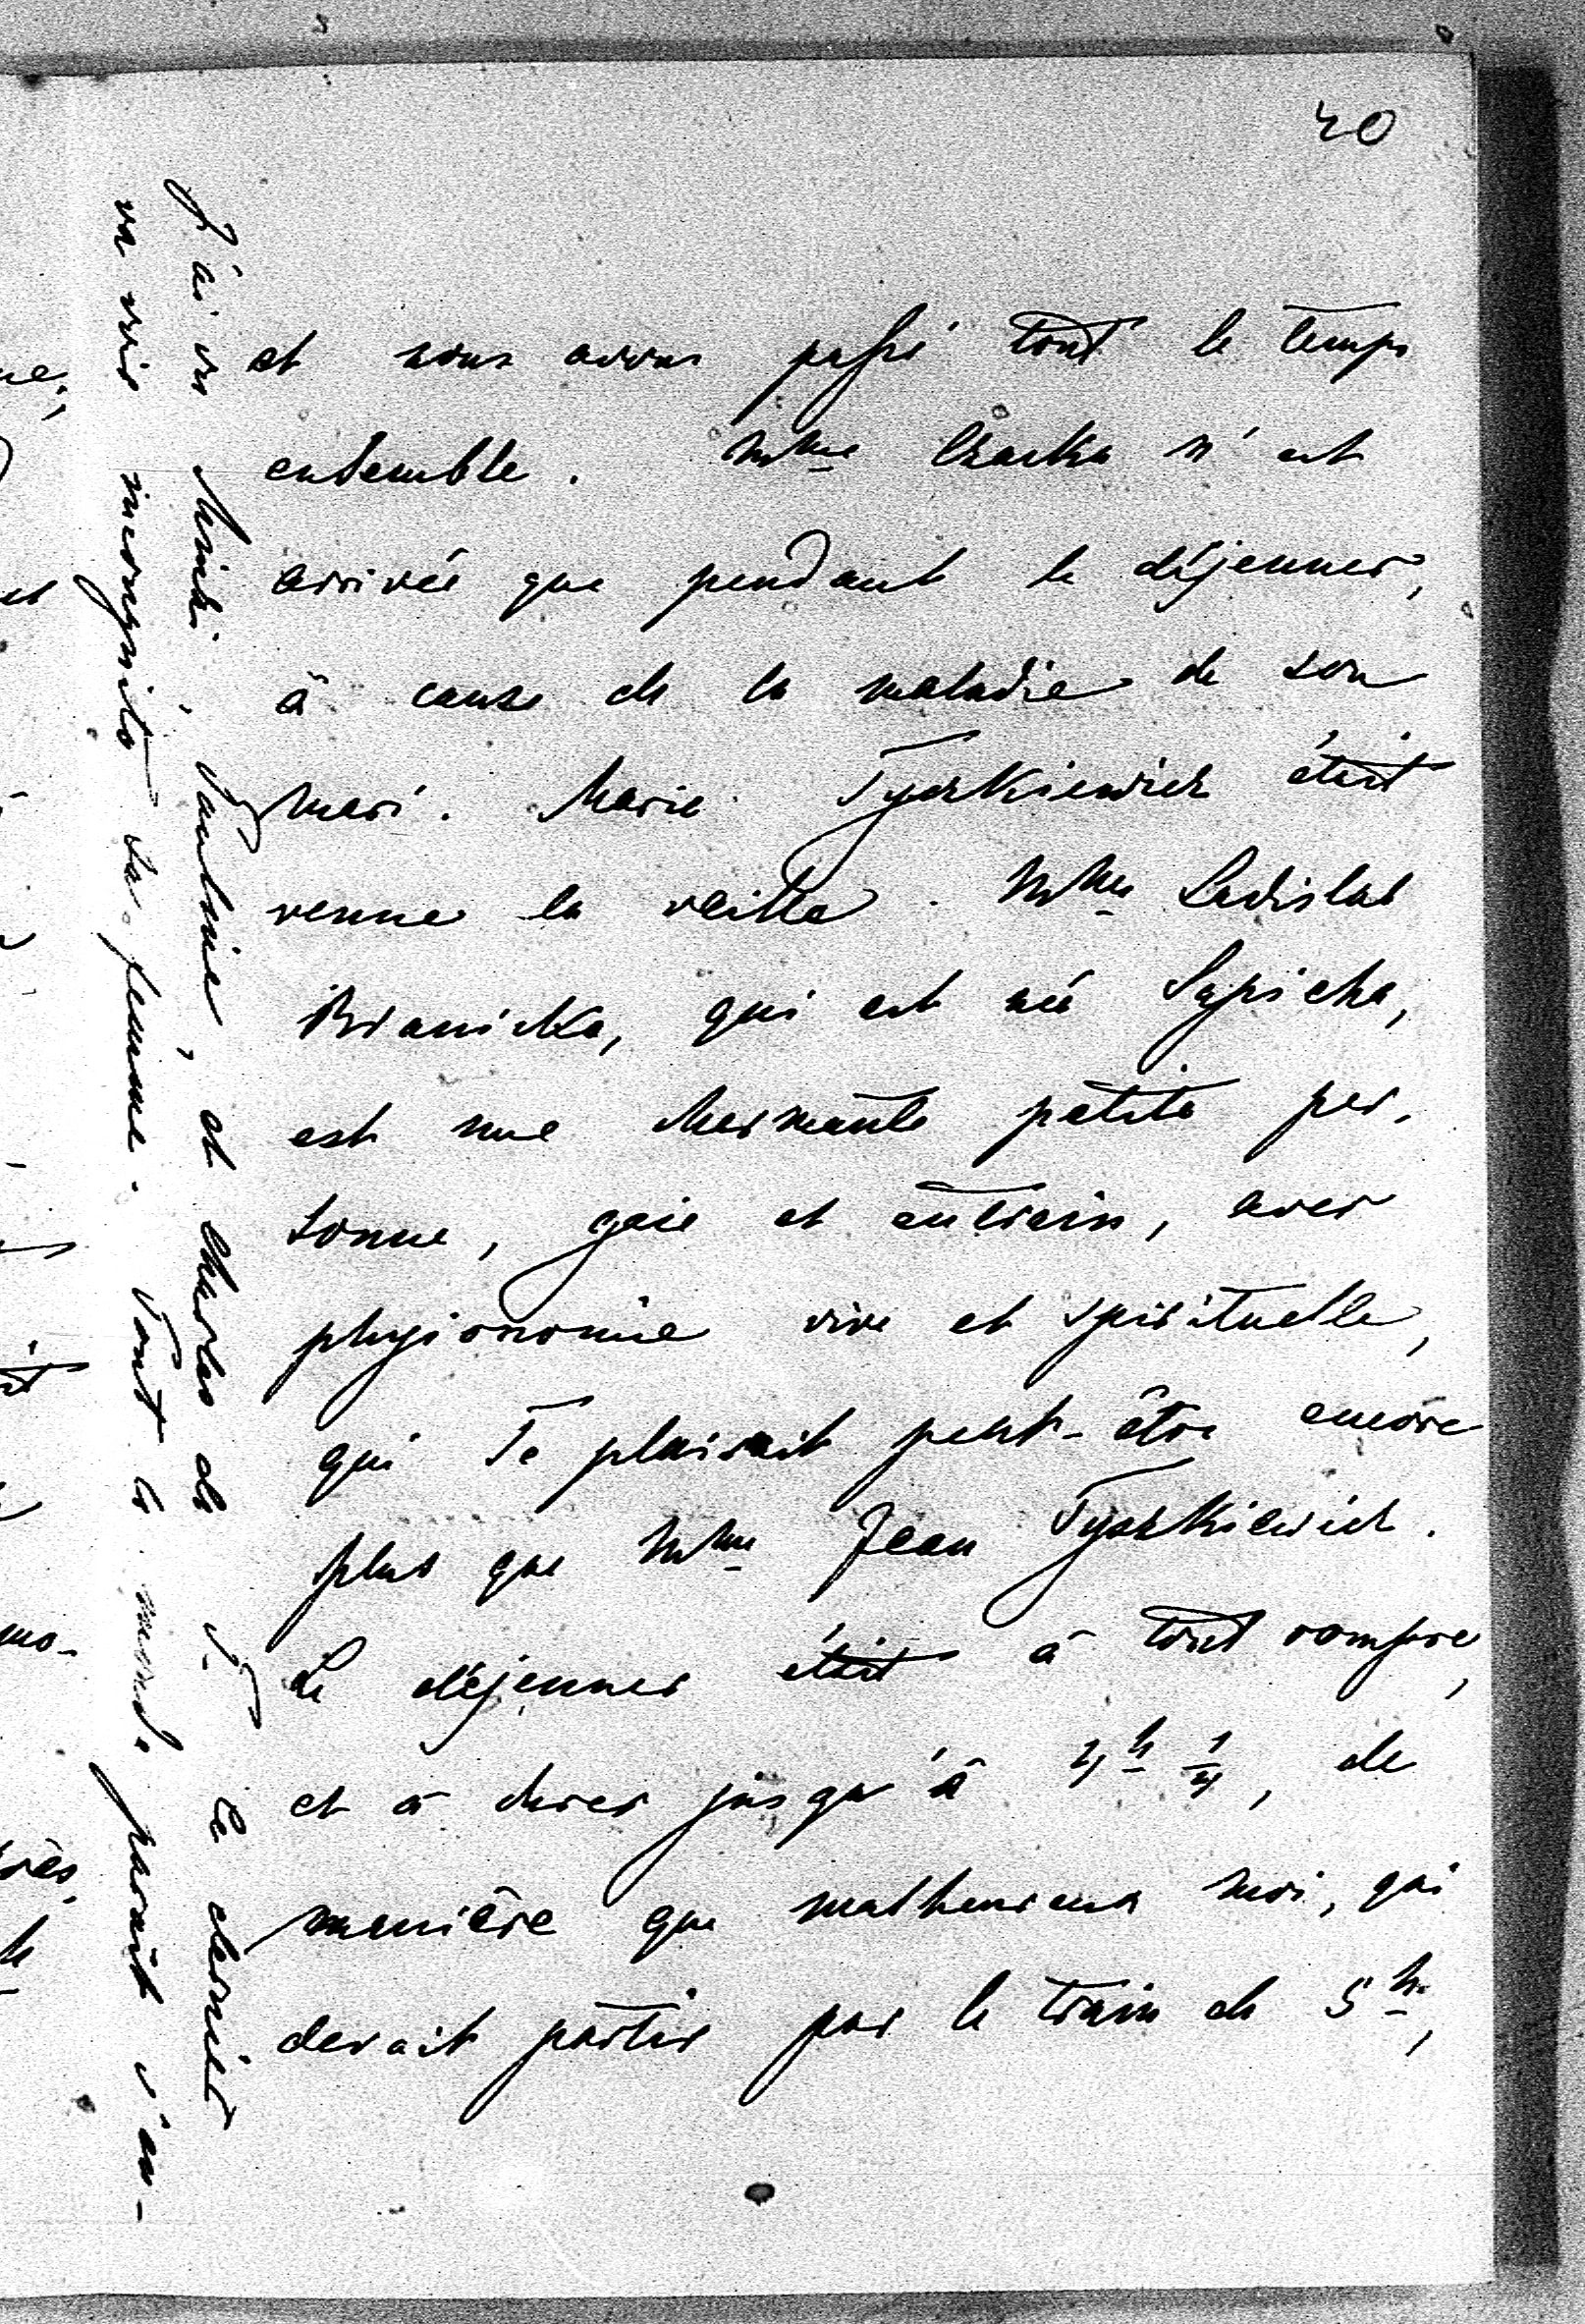 40
et nous avons passé tout le temps
ensemble. Mme Czacka n'est
arrivée que pendant le déjeuner,
à cause de la maladie de son
mari. Marie Tyszkiewicz était
venue la veille. Mme Ladislas
Branicka, qui est née Sapieha,
est une charmante petite per-
sonne, gaie et entrain, avec
physionomie vive et spirituelle,
qui Te plairait peut-être encore
plus que Mme Jean Tyszkiewicz.
Le déjeuner était à tout rompre,
et à durer jusqu'à 4h 1/4, de
manière que malheureux moi, qui
devait partir par le train de 5h,
J'ai vu , Pauline, et Charles de Ce dernier
va voir incognito sa femme. Tout le monde paraît s'en-